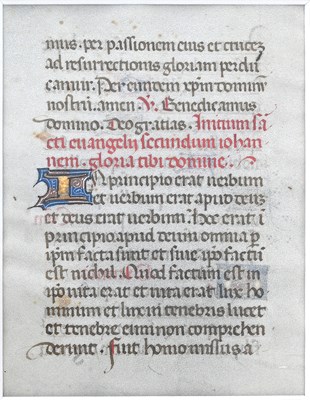 mus. per passionem eius et crucez
ad resurrectionis gloriam perdu
camur. Per eundem xp̄m dominū
nostrū. amen. ℣. Benedicamus
domino. Deo gratias. Initium sā
cti euangelij secundum iohan
nem. gloria tibi domine.
In principio erat uerbum
et uerbum erat apud deuz
et deus erat uerbum. Hoc erat i
principio apud deum omnia p
ipm̄ facta sunt et sine ipso factū
est nichil. Quod factum est in
ipo uita erat et uita erat lux ho
minum et lux in tenebris lucet
et tenebre eum non comprehen
derunt. Fuit homo missus a